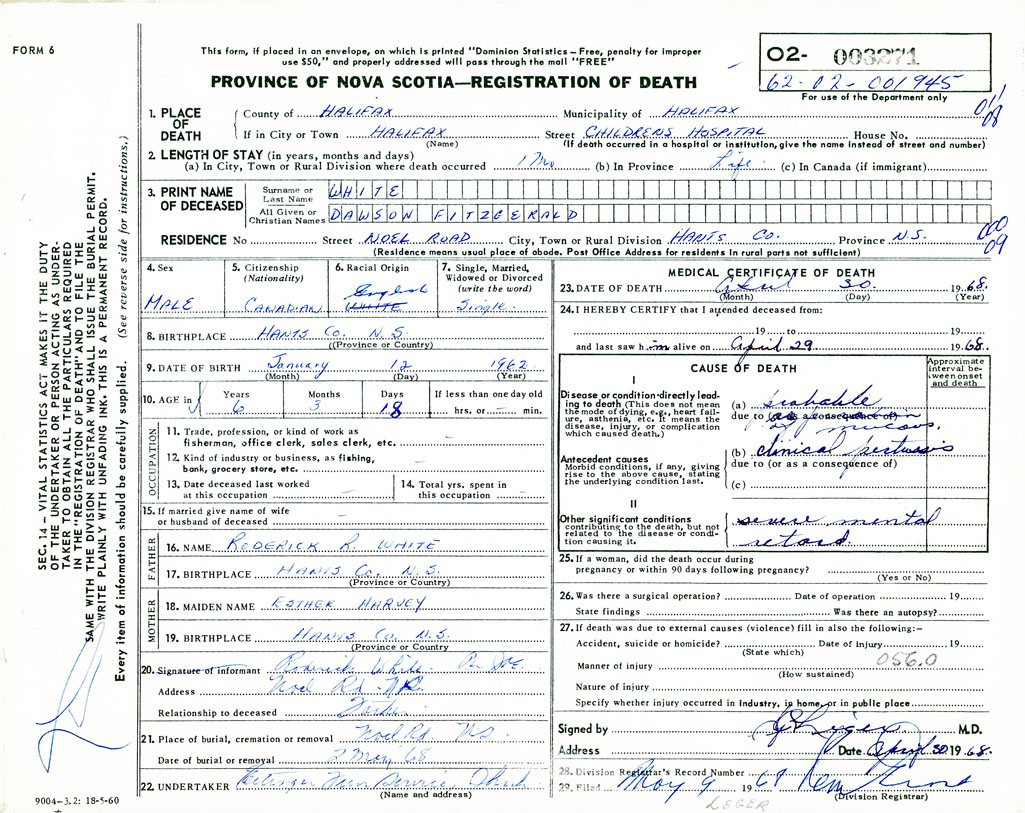 FORM 6
This form, if placed in an envelope, on which is printed "Dominion Statistics – Free, penalty for improper
use $50," and properly addressed will pass through the mail "FREE"
PROVINCE OF NOVA SCOTIA—REGISTRATION OF DEATH
02- 003271
62-02-001945
For use of the Department only
SEC. 14 – VITAL STATISTICS ACT MAKES IT THE DUTY
OF THE UNDERTAKER OR PERSON ACTING AS UNDER-
TAKER TO OBTAIN ALL THE PARTICULARS REQUIRED
IN THE "REGISTRATION OF DEATH" AND TO FILE THE
SAME WITH THE DIVISION REGISTRAR WHO SHALL ISSUE THE BURIAL PERMIT.
WRITE PLAINLY WITH UNFADING INK. THIS IS A PERMANENT RECORD.
Every item of information should be carefully supplied. (See reverse side for instructions.)
1. PLACE OF DEATH
County of HALIFAX Municipality of HALIFAX
If in City or Town HALIFAX Street CHILDRENS HOSPITAL House No.
(Name) (If death occurred in a hospital or institution, give the name instead of street and number)
2. LENGTH OF STAY (in years, months and days)
(a) In City, Town or Rural Division where death occurred 1 Mo. (b) In Province Life (c) In Canada (if immigrant)
3. PRINT NAME OF DECEASED
Surname or Last Name WHITE
All Given or Christian Names DAWSON FITZGERALD
RESIDENCE No Street NOEL ROAD City, Town or Rural Division HANTS CO. Province N.S.
(Residence means usual place of abode. Post Office Address for residents in rural parts not sufficient)
000
09
4. Sex MALE
5. Citizenship (Nationality) CANADIAN
6. Racial Origin English WHITE
7. Single, Married, Widowed or Divorced (write the word) Single
8. BIRTHPLACE HANTS CO. N.S.
(Province or Country)
9. DATE OF BIRTH January 12 1962
(Month) (Day) (Year)
10. AGE in Years 6 Months 3 Days 18 If less than one day old hrs. or min.
OCCUPATION
11. Trade, profession, or kind of work as
fisherman, office clerk, sales clerk, etc. –
12. Kind of industry or business, as fishing,
bank, grocery store, etc. –
13. Date deceased last worked at this occupation –
14. Total yrs. spent in this occupation –
15. If married give name of wife
or husband of deceased –
FATHER
16. NAME RODERICK R. WHITE
17. BIRTHPLACE HANTS CO. N.S.
(Province or Country)
MOTHER
18. MAIDEN NAME ESTHER HARVEY
19. BIRTHPLACE HANTS CO. N.S.
(Province or Country
20. Signature of informant Roderick White
Address Noel Rd
Relationship to deceased Father
21. Place of burial, cremation or removal Noel Rd NS.
Date of burial or removal 2 May 68
22. UNDERTAKER
(Name and address)
9004–3.2: 18-5-60
MEDICAL CERTIFICATE OF DEATH
23. DATE OF DEATH April 30 1968.
(Month) (Day) (Year)
24. I HEREBY CERTIFY that I attended deceased from:
19 to 19
and last saw him alive on April 29 1968.
CAUSE OF DEATH
Approximate interval between onset and death
I
Disease or condition directly lead-
ing to death (This does not mean
the mode of dying, e.g., heart fail-
ure, asthenia, etc. It means the
disease, injury, or complication
which caused death.)
(a) probable
due to (or as a consequence of)
of mucous.
Antecedent causes
Morbid conditions, if any, giving
rise to the above cause, stating
the underlying condition last.
(b) clinical pertussis
due to (or as a consequence of)
(c)
II
Other significant conditions
contributing to the death, but not
related to the disease or condi-
tion causing it.
severe mental
retard.
25. If a woman, did the death occur during
pregnancy or within 90 days following pregnancy?
(Yes or No)
26. Was there a surgical operation? Date of operation 19
State findings Was there an autopsy?
27. If death was due to external causes (violence) fill in also the following:–
Accident, suicide or homicide? Date of injury 19
(State which)
056.0
Manner of injury
(How sustained)
Nature of injury
Specify whether injury occurred in industry, in home, or in public place
Signed by M.D.
Address Date April 30 1968.
28. Division Registrar's Record Number
29. Filed May 9 1968
(Division Registrar)
LEGER